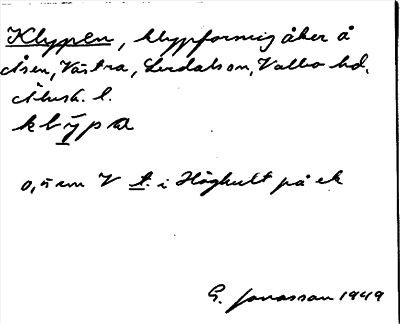 Klyppen, klyppformig åker å
Åsen, Västra, Lerdalson, Valbo hd.
Älvsb. l.
klypa
0,5 cm V t. i Höghult på ek
G. Jonasson 1949